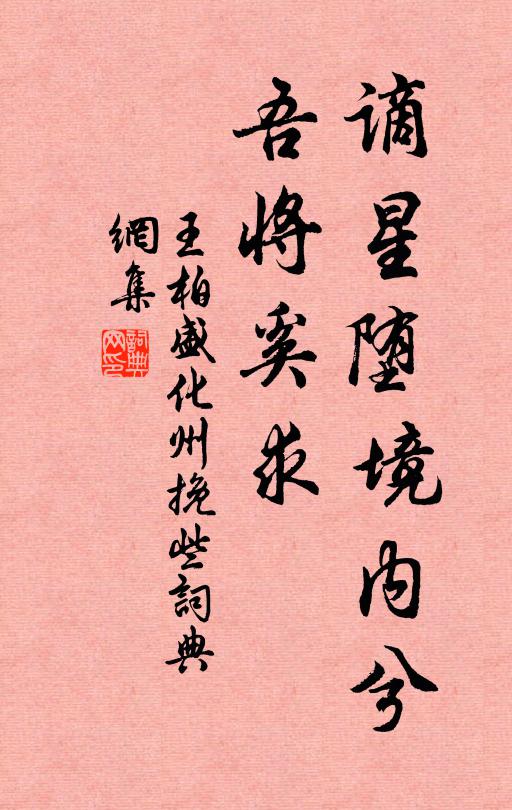 谪星堕境内兮
吾将奚求
王柏盛化州挽些詞典
網集
詞典網印